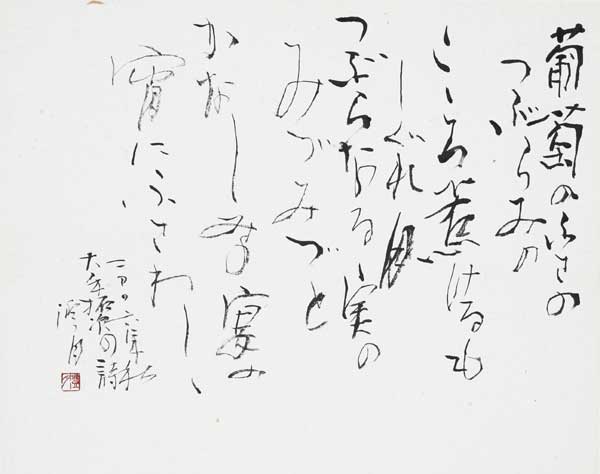 葡萄のふさの
つぶらみの
こゝろ惹けるも
しぐれ月
つぶらなる実の
みづみづと
かなしみの宴の
宵にふさわし
二〇〇六年秋
大手拓次の詩